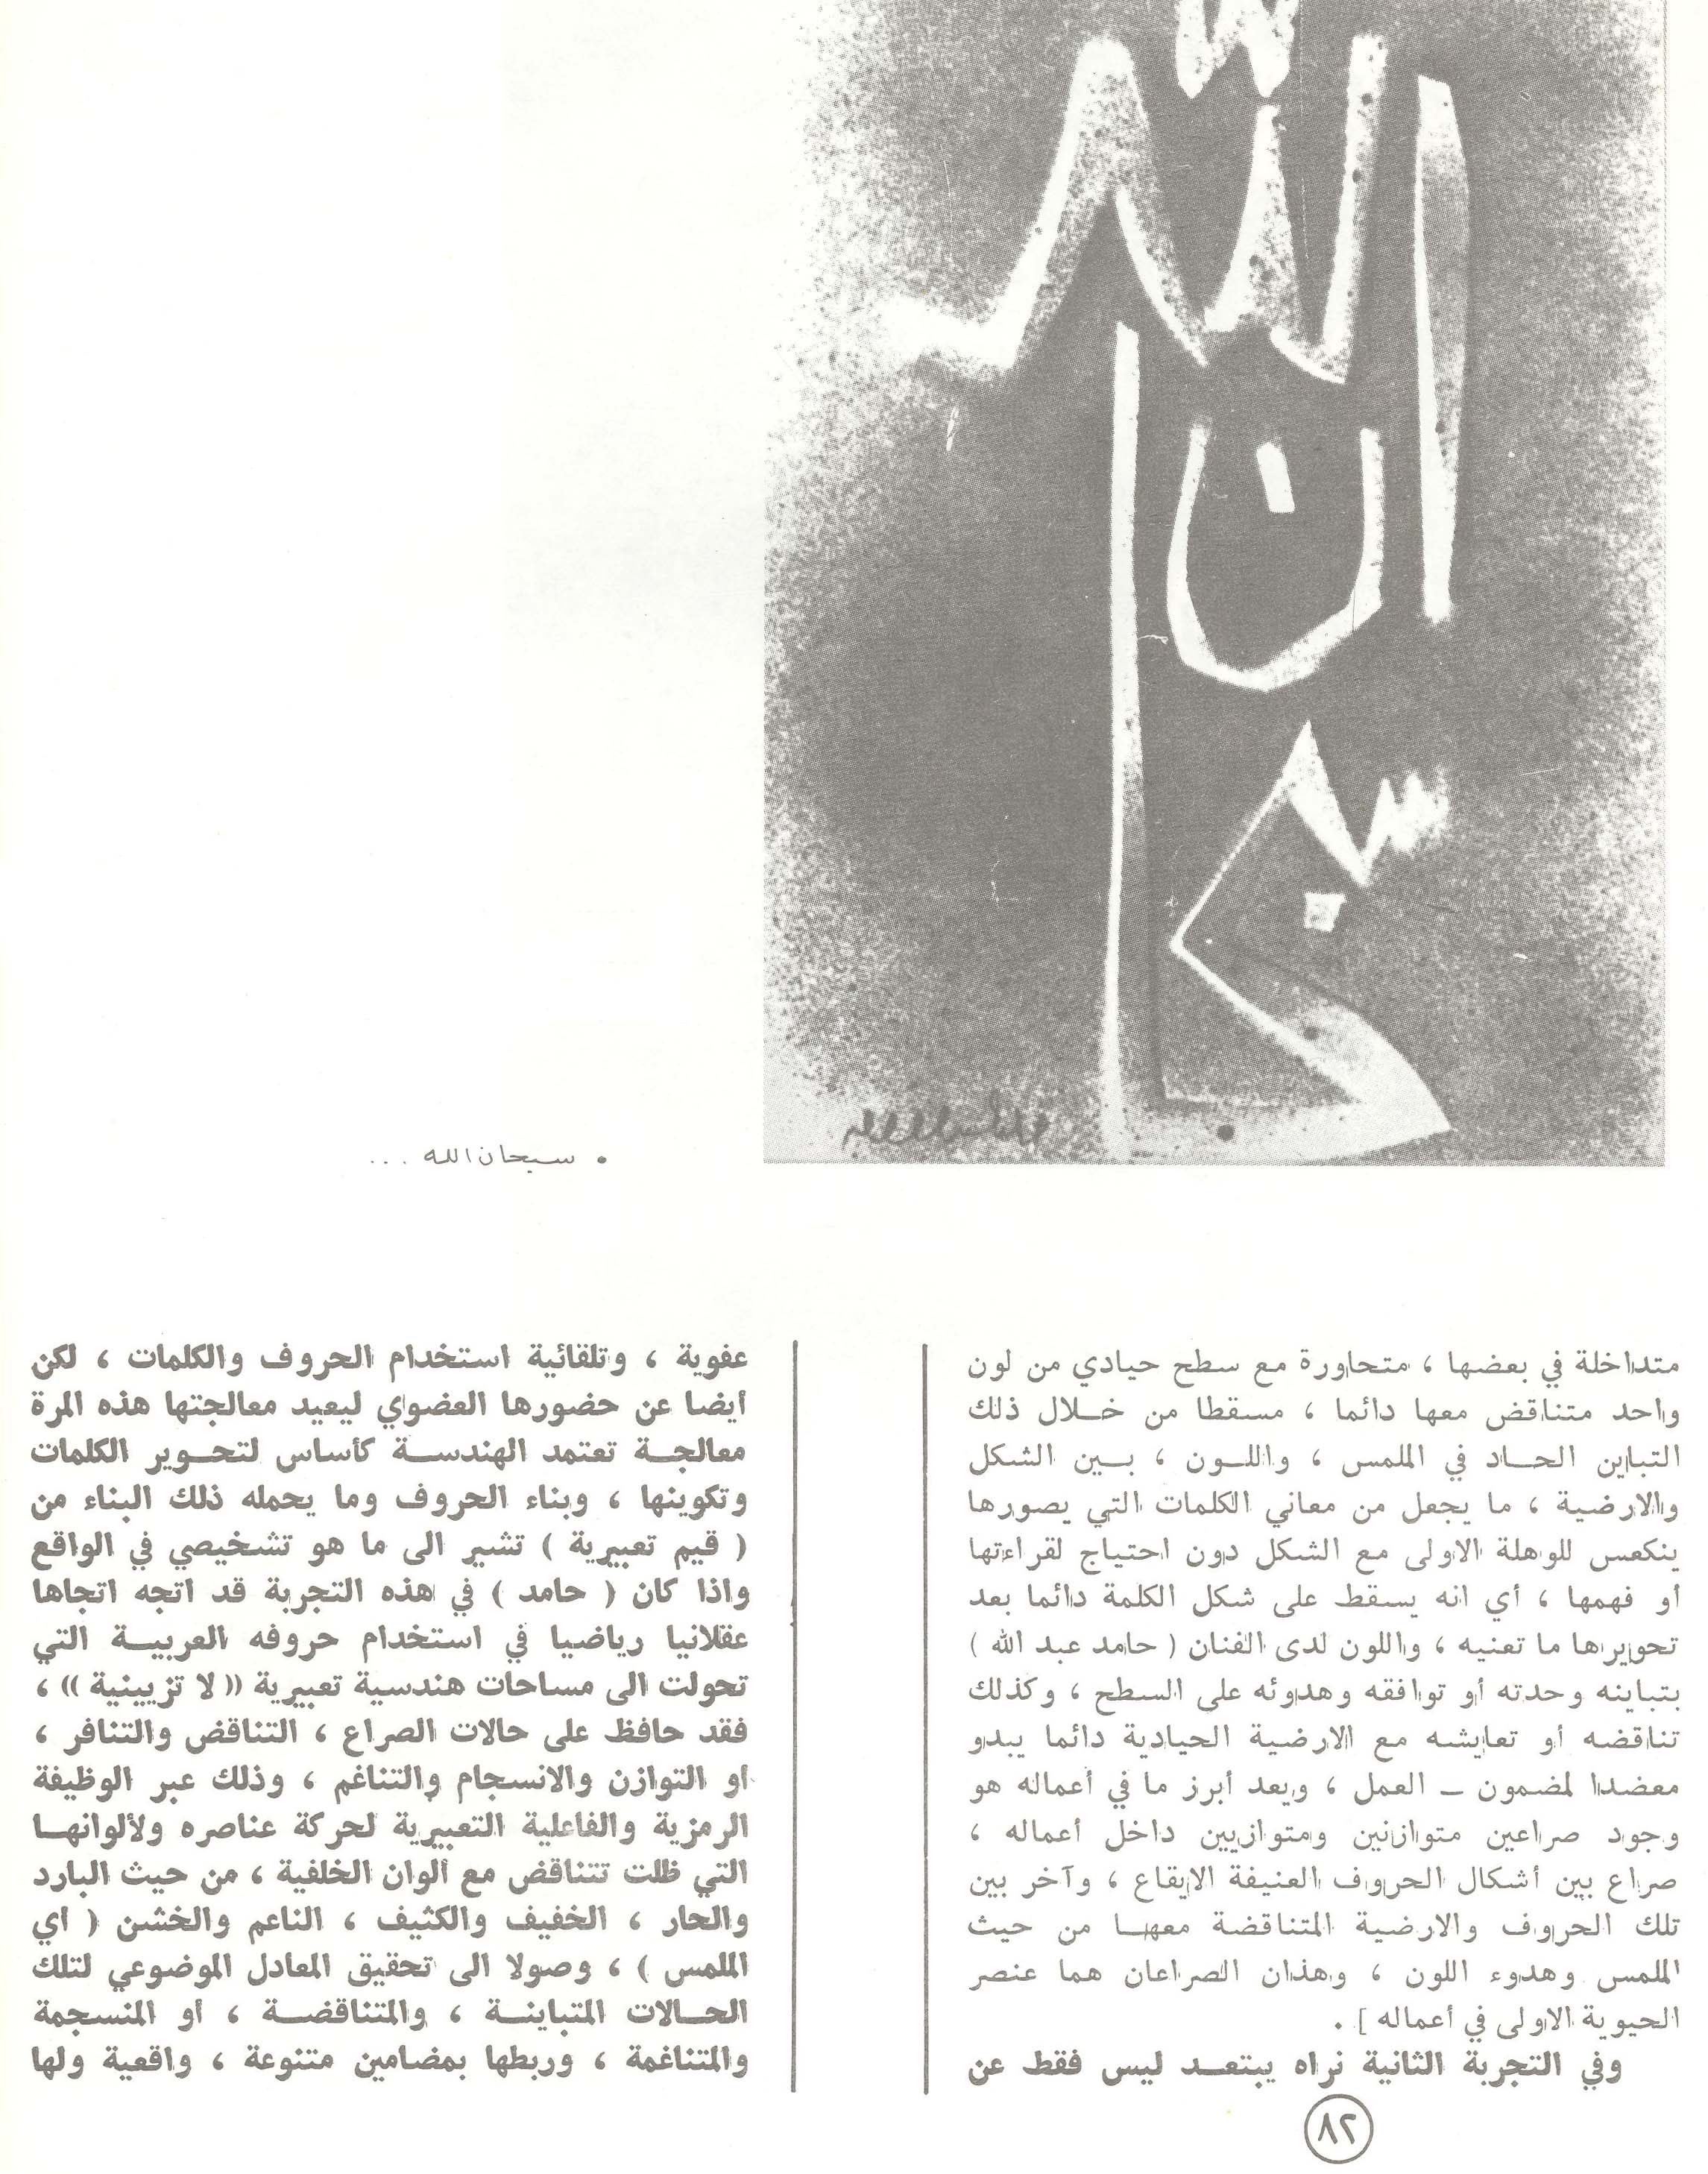 سبحان الله
• سبحان الله ...
متداخلة في بعضها ، متحاورة مع سطح حيادي من لون
واحد متناقض معها دائما ، مسقطا من خــلال ذلك
التباين الحــاد في الملمس ، واللــون ، بــين الشكل
والارضية ، ما يجعل من معاني الكلمات التي يصورها
ينكعس للوهلة الاولى مع الشكل دون احتياج لقراءتها
أو فهمها ، أي انه يسقط على شكل الكلمة دائما بعد
تحويرها ما تعنيه ، واللون لدى الفنان ( حامد عبد الله )
بتباينه وحدته أو توافقه وهدوئه على السطح ، وكذلك
تناقضه أو تعايشه مع الارضية الحيادية دائما يبدو
معضدا لمضمون – العمل ، ويعد أبرز ما في أعماله هو
وجود صراعين متوازنين ومتوازيين داخل أعماله ،
صراع بين أشكال الحروف العنيفة الايقاع ، وآخر بين
تلك الحروف والارضية المتناقضة معهــا من حيث
الملمس وهدوء اللون ، وهذان الصراعان هما عنصر
الحيوية الاولى في أعماله ] .
وفي التجربة الثانية نراه يبتعــد ليس فقط عن
عفوية ، وتلقائية استخدام الحروف والكلمات ، لكن
أيضا عن حضورها العضواي ليعيد معالجتها هذه المرة
معالجــة تعتمد الهندســة كأساس لتحــوير الكلمات
وتكوينها ، وبناء الحروف وما يحمله ذلك البناء من
( قيم تعبيرية ) تشير الى ما هو تشخيصي في الواقع
واذا كان ( حامد ) في هذه التجربة قد اتجه اتجاها
عقلانيا رياضيا في استخدام حروفه العربيــة التي
تحولت الى مساحات هندسية تعبيرية (( لا تزيينية )) ،
فقد حافظ على حالات الصراع ، التناقض والتنافر ،
او التوازن والانسجام والتناغم ، وذلك عبر الوظيفة
الرمزية والفاعلية التعبيرية لحركة عناصره ولألوانهــا
التي ظلت تتناقض مع ألوان الخلفية ، من حيث البارد
والحار ، الخفيف والكثيف ، الناعم والخشن ( اي
الملمس ) ، وصولا الى تحقيق المعادل الموضوعي لتلك
الحــالات المتباينــة ، والمتناقضــة ، أو المنسجمة
والمتناغمة ، وربطها بمضامين متنوعة ، واقعية ولها
٨٢